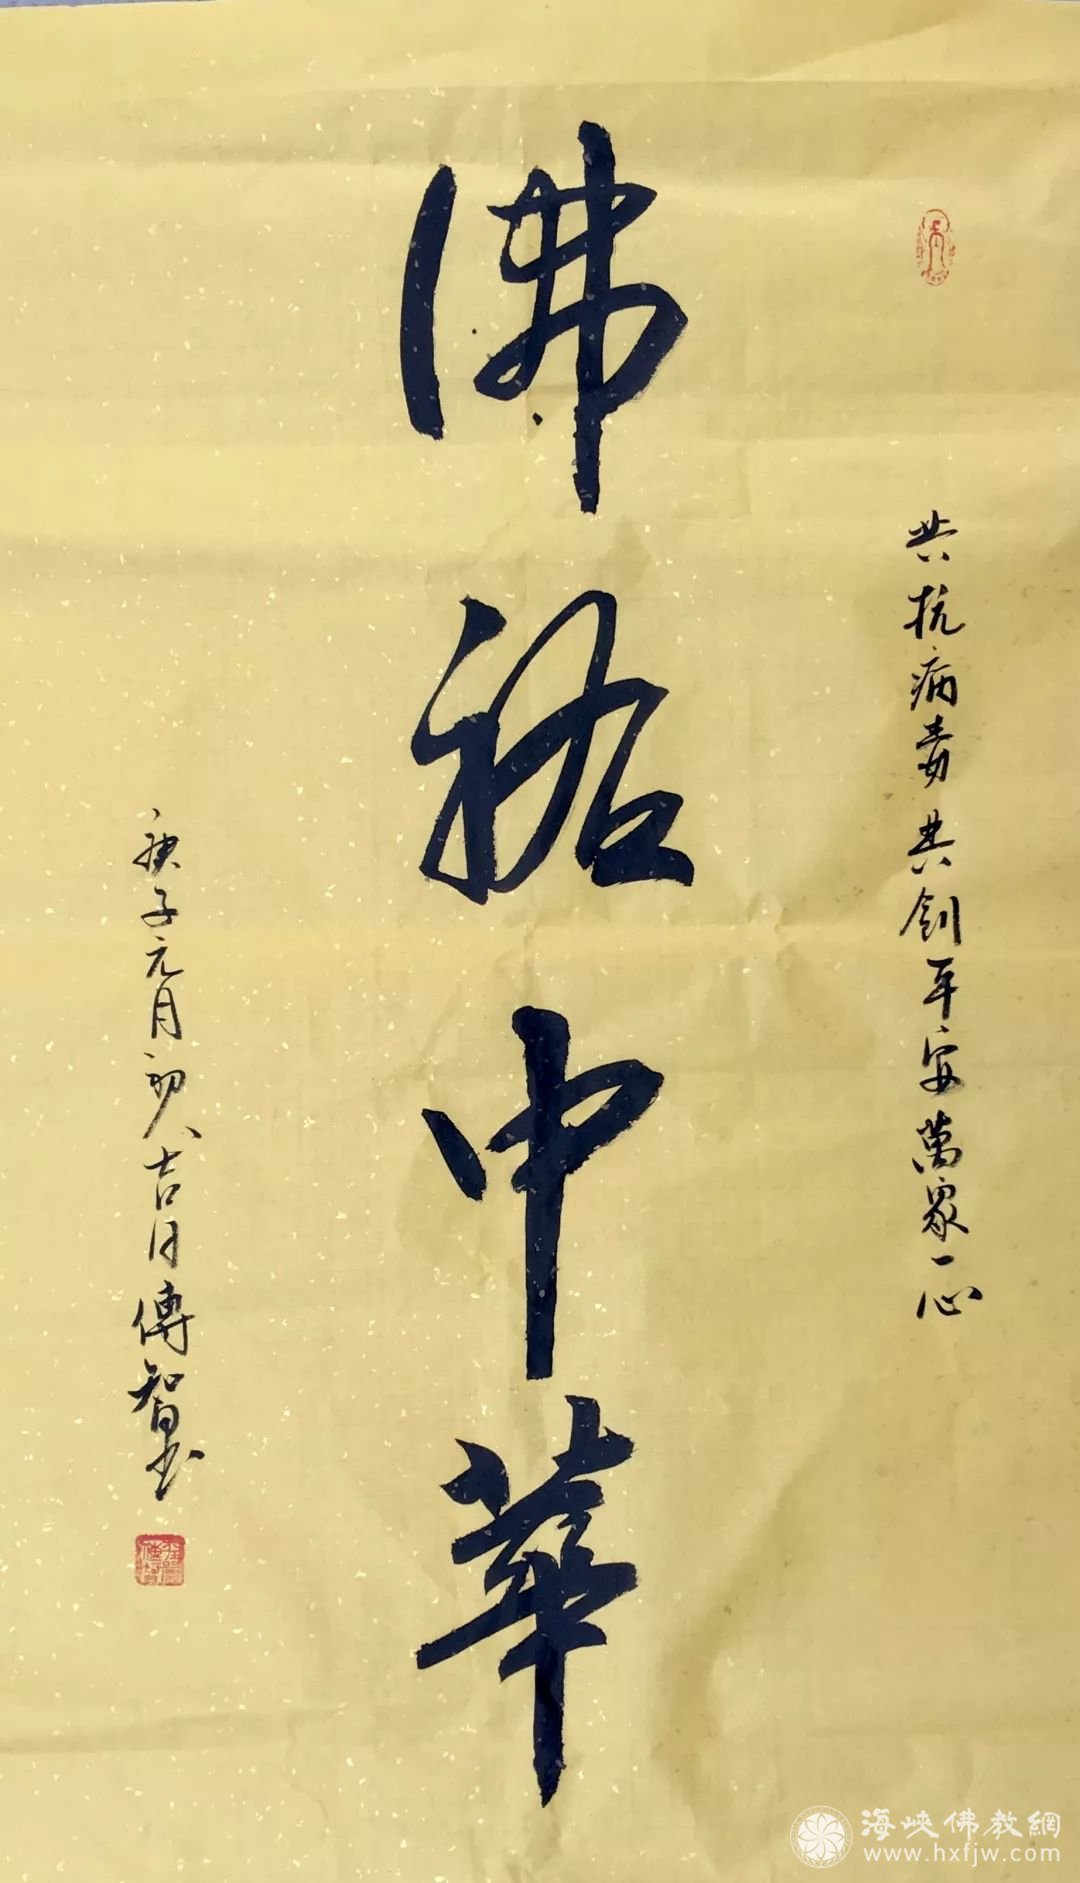 共抗病毒共創平安萬眾一心
佛祐中華
庚子元月初八吉日傳智书
海峽佛教網
www.hxfjw.com